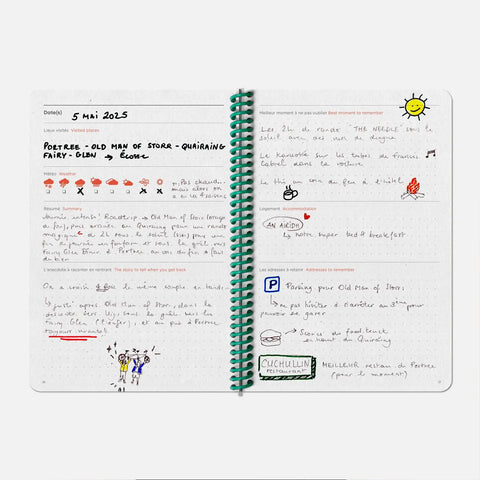 Date(s) 5 MAI 2025
Lieux visités Visited places
PORTREE - OLD MAN OF STORR - QUAIRAING
FAIRY-GLEN → Écosse
Météo Weather
Pas chaud...
mais alors on
a eu les 4 saisons
Résumé Summary
Journée intense ! Roadtrip → Old Man of Storr
du feu), puis ensuite au Quairing pour une rando
magique de 2h sous le soleil pour une
fin
Fairy Glen Portree au coin du feu
du bien
L'anecdote à raconter en rentrant The story to tell when you get back
On a croisé 4 fois le même couple en rando:
↳ juste après Old Man of Storr, dans la
descente vers Uig, dans la
Fairy Glen et un pub à Portree
toujours
Meilleur moment à ne pas oublier Best moment to remember
Les 2h de rando "THE NEEDLE" sous le
soleil avec des vues de dingue
Le Karaoké sur les tubes de Francis
Cabrel dans la voiture
Le thé au coin du feu à l'hôtel
Logement Accommodation
AN AIRIDH
↳ notre super bed & breakfast
Les adresses à retenir Addresses to remember
P Parking pour Old Man of Storr:
↳ ne pas hésiter à s'arrêter au 3ème pour
pouvoir se garer
→ Scones du food truck
en haut du Quairing
CUCHULLIN
restaurant
MEILLEUR restau de Portree
(pour le moment)